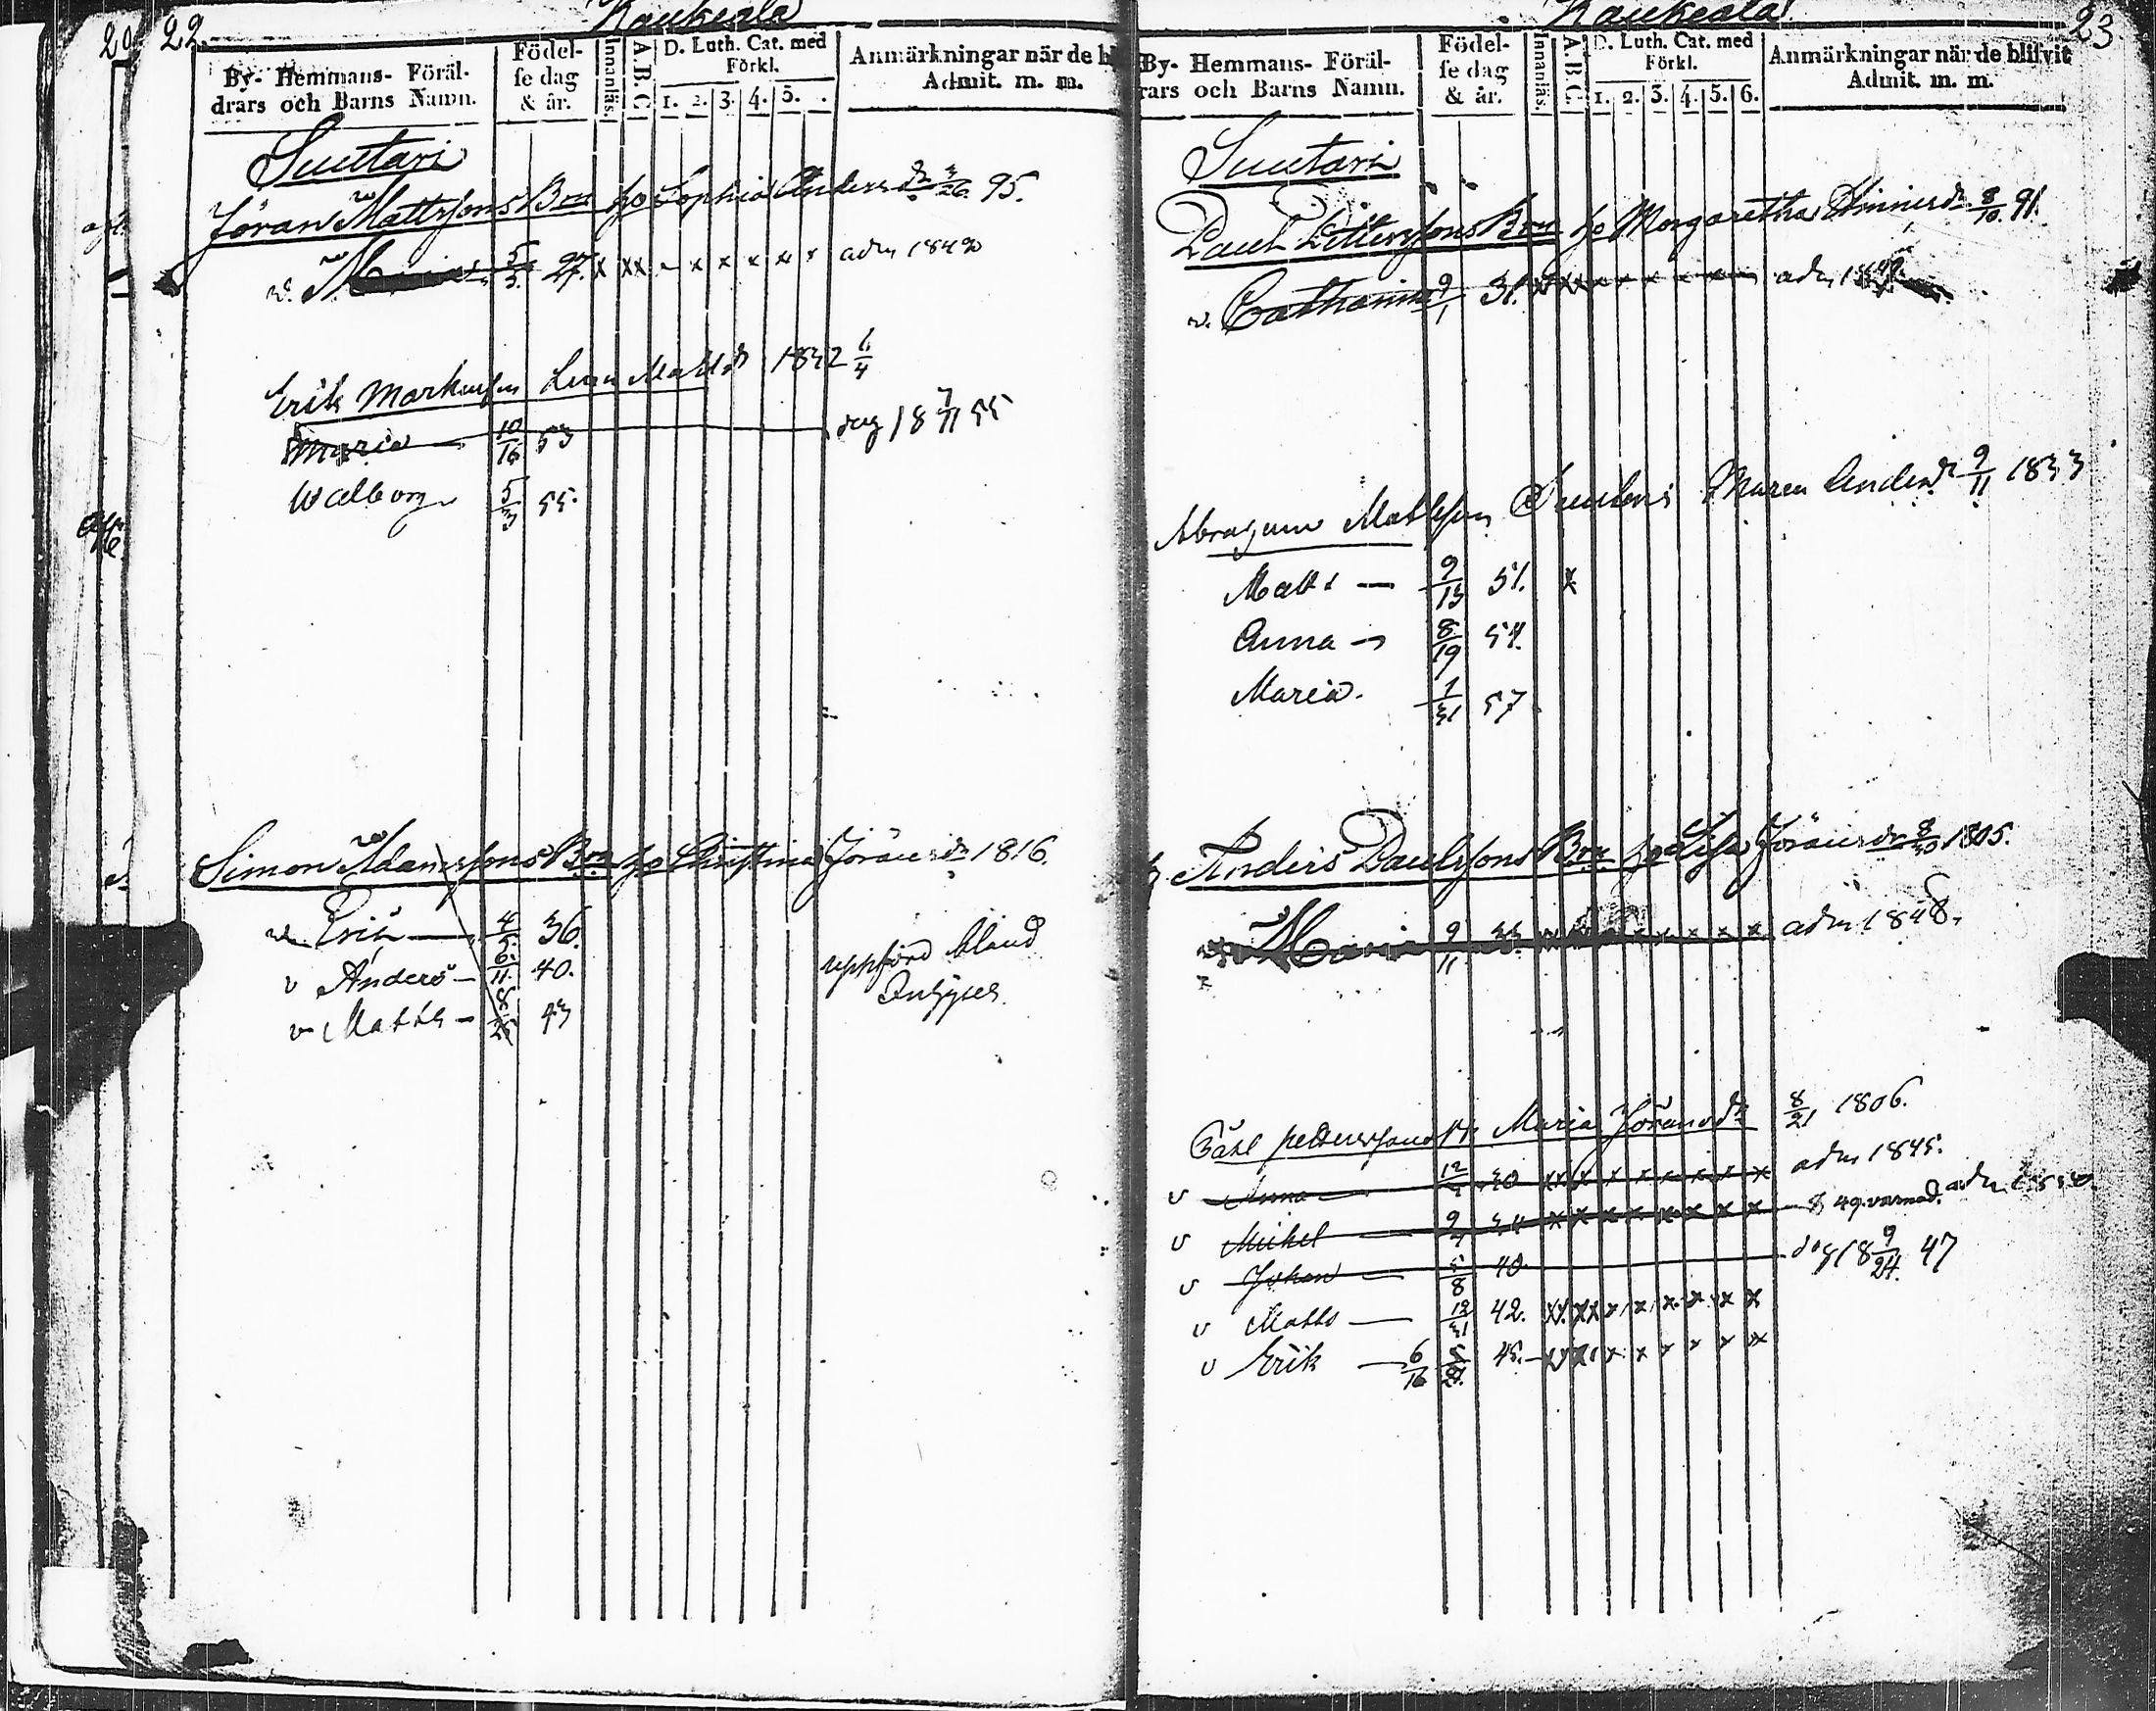 20 22.
Kaukeala
By- Hemmans- Föräl-
drars och Barns Namn.
Födel-
se dag
& år.
Innanläs.
A.B.C.
D. Luth. Cat. med
Förkl.
1. 2. 3. 4. 5.
Anmärkningar när de bl
Admit. m. m.
Suutari
Jöran Mattssons Bon ho Sophia Andersdr 3/26. 95.
v. 5/3. 27. x xx - x x x x x adm 184
Erik Markusson Mattsdr 1832 6/4
Maria 10/16 53 18 7/11 55
Walborg 5/3 55.
Simon Adamssons Bon ho Christina Jöransdr 1816.
v. Erik 4/5. 36.
v Anders 6/11. 40.
v Matts 8/25 43
uppförd bland
Inhyses
Kaukeala
23
By- Hemmans- Föräl-
rars och Barns Namn.
Födel-
se dag
& år.
Innanläs.
A.B.C.
D. Luth. Cat. med
Förkl.
1. 2. 3. 4. 5. 6.
Anmärkningar när de blifvit
Admit. m. m.
Suutari
Paul Pettersons Bon ho Margaretha Hinrsdr 8/10 91.
v. Catharina 9/1 31. adm
Mattsson Maria Andersdr 9/11 1833
Matts — 9/13 51. x
Anna 8/19 54.
Maria. 1/31 57
Anders Paulssons Bon ho Lisa Jöransdr 8/30 1805.
Maria 9/11 33. adm 1848.
Pettersson Maria Jöransdr 8/21 1806.
v Anna 12/ 30 xx x x x x x x x adm 1845.
v Mickel 9/ 34 x x x x x x x x 49. varnad. adm
v Johan 5/8 40 dog 18 9/24. 47
v Matts — 12/31 42. xx xx x x x x x x
v Erik 6/16 5/21. 45. xx xx x x x x x x